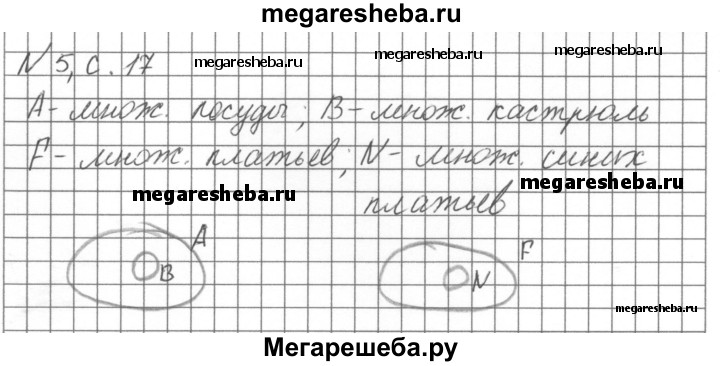 megaresheba.ru
N 5, с. 17 megaresheba.ru megaresheba.ru
A - множ. посуды; B - множ. кастрюль
F - множ. платьев; N - множ. синих
megaresheba.ru платьев megaresheba.ru
A F
B N
megaresheba.ru
Мегарешеба.ру